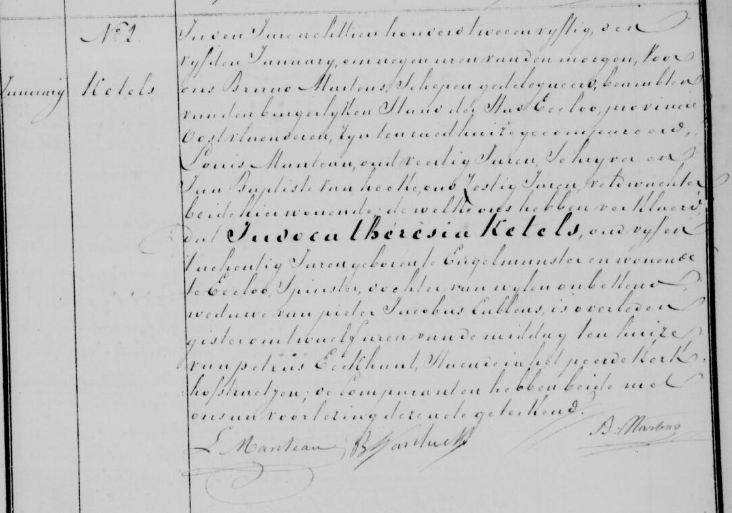 No. 2.
January
Ketels
In den Jare achttien honderd tweeenvyftig, den
vyfden January, om negen uren van den morgen, voor
ons Bruno Martens, Schepen gedelegueerd, beambten
van den burgerlyken Stand der Stad Eecloo, provincie
Oostvlaenderen, zyn ten raedhuize gecompareerd,
Louis Manteau, oud veertig Jaren, Schryver en
Jan Baptiste Van hecke, oud Zestig Jaren, veldwachter
beide hier wonende; de welke ons hebben verklaerd
dat Judoca thérésia Ketels, oud vyf en
tachentig Jaren geboren te Engelmunster en wonende
te Eecloo, Spinster, dochter van wylen onbekend
weduwe van pieter Jacobus Cablens, is overleden
gister om twaelf uren van de middag ten huize
van petrus Eeckhaut, Staende in het peerdekerk
hofstraetjen; de Comparanten hebben beide met
ons na voorlezing deze acte geteekend.
L Manteau
B. Martens